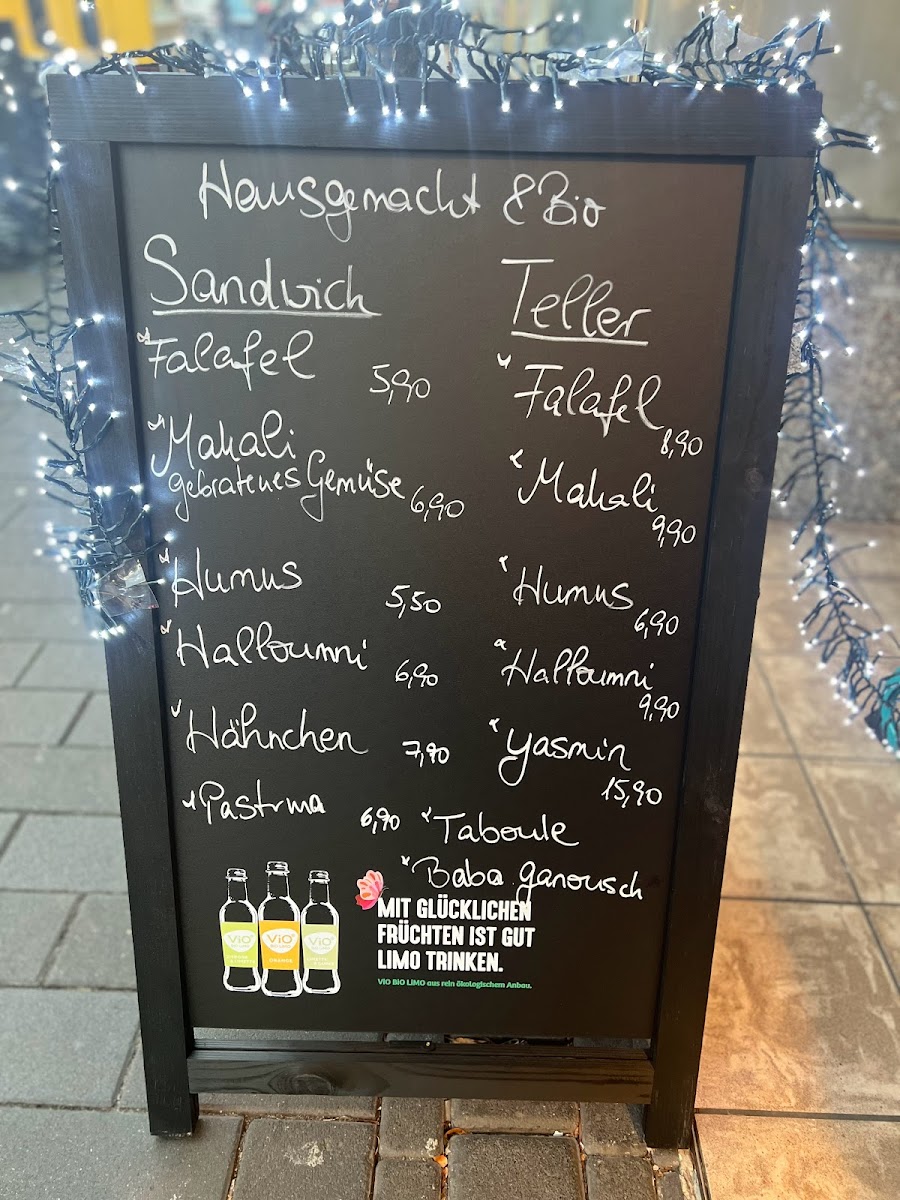 Hausgemacht & Bio
Sandwich
Falafel 5,90
Makali
gebratenes Gemüse 6,90
Humus 5,50
Halloumni 6,90
Hähnchen 7,90
Pastrma 6,90
Teller
Falafel 8,90
Makali 9,90
Humus 6,90
Halloumni 9,90
Yasmin 15,90
Taboule
Baba ganousch
ViO
ViO
ORANGE
ViO
MIT GLÜCKLICHEN
FRÜCHTEN IST GUT
LIMO TRINKEN.
VIO BIO LIMO aus rein ökologischem Anbau.